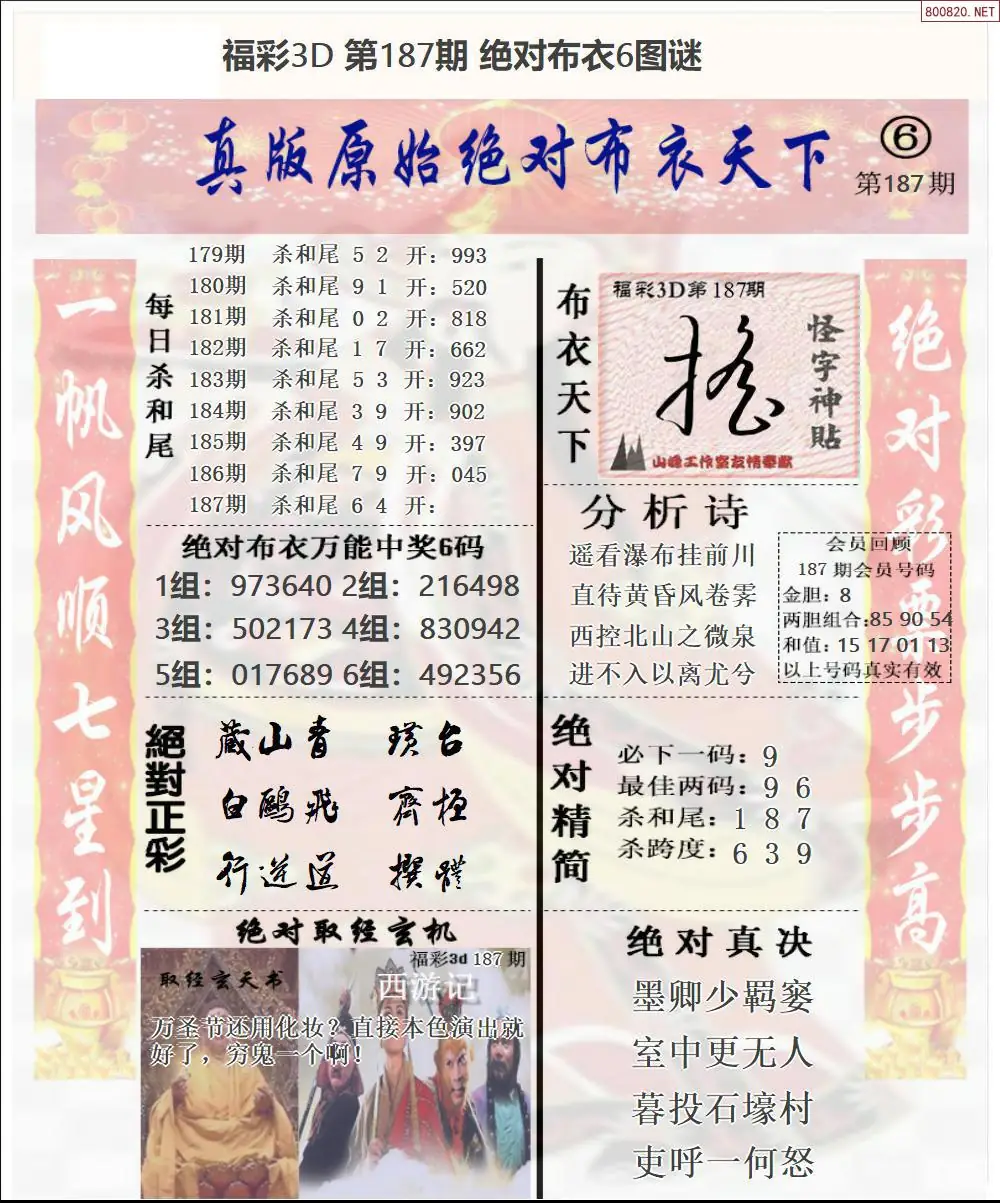 800820.NET
福彩3D 第187期 绝对布衣6图谜
真版原始绝对布衣天下
⑥
第187期
一帆风顺七星到
每日杀和尾
179期 杀和尾 5 2 开：993
180期 杀和尾 9 1 开：520
181期 杀和尾 0 2 开：818
182期 杀和尾 1 7 开：662
183期 杀和尾 5 3 开：923
184期 杀和尾 3 9 开：902
185期 杀和尾 4 9 开：397
186期 杀和尾 7 9 开：045
187期 杀和尾 6 4 开：
绝对布衣万能中奖6码
1组：973640 2组：216498
3组：502173 4组：830942
5组：017689 6组：492356
絕對正彩
藏山青 璜台
白鷗飛 齊極
行逆道 撰體
绝对取经玄机
福彩3d 187 期
取经玄天书
西游记
万圣节还用化妆？直接本色演出就
好了，穷鬼一个啊！
布衣天下
福彩3D第187期
怪字神貼
山峰工作室友情奉献
分析诗
遥看瀑布挂前川
直待黄昏风卷霁
西控北山之微泉
进不入以离尤兮
会员回顾
187 期会员号码
金胆：8
两胆组合:85 90 54
和值：15 17 01 13
以上号码真实有效
绝对精简
必下一码：9
最佳两码：9 6
杀和尾：1 8 7
杀跨度：6 3 9
绝对真决
墨卿少羁窭
室中更无人
暮投石壕村
吏呼一何怒
绝对彩票步步高